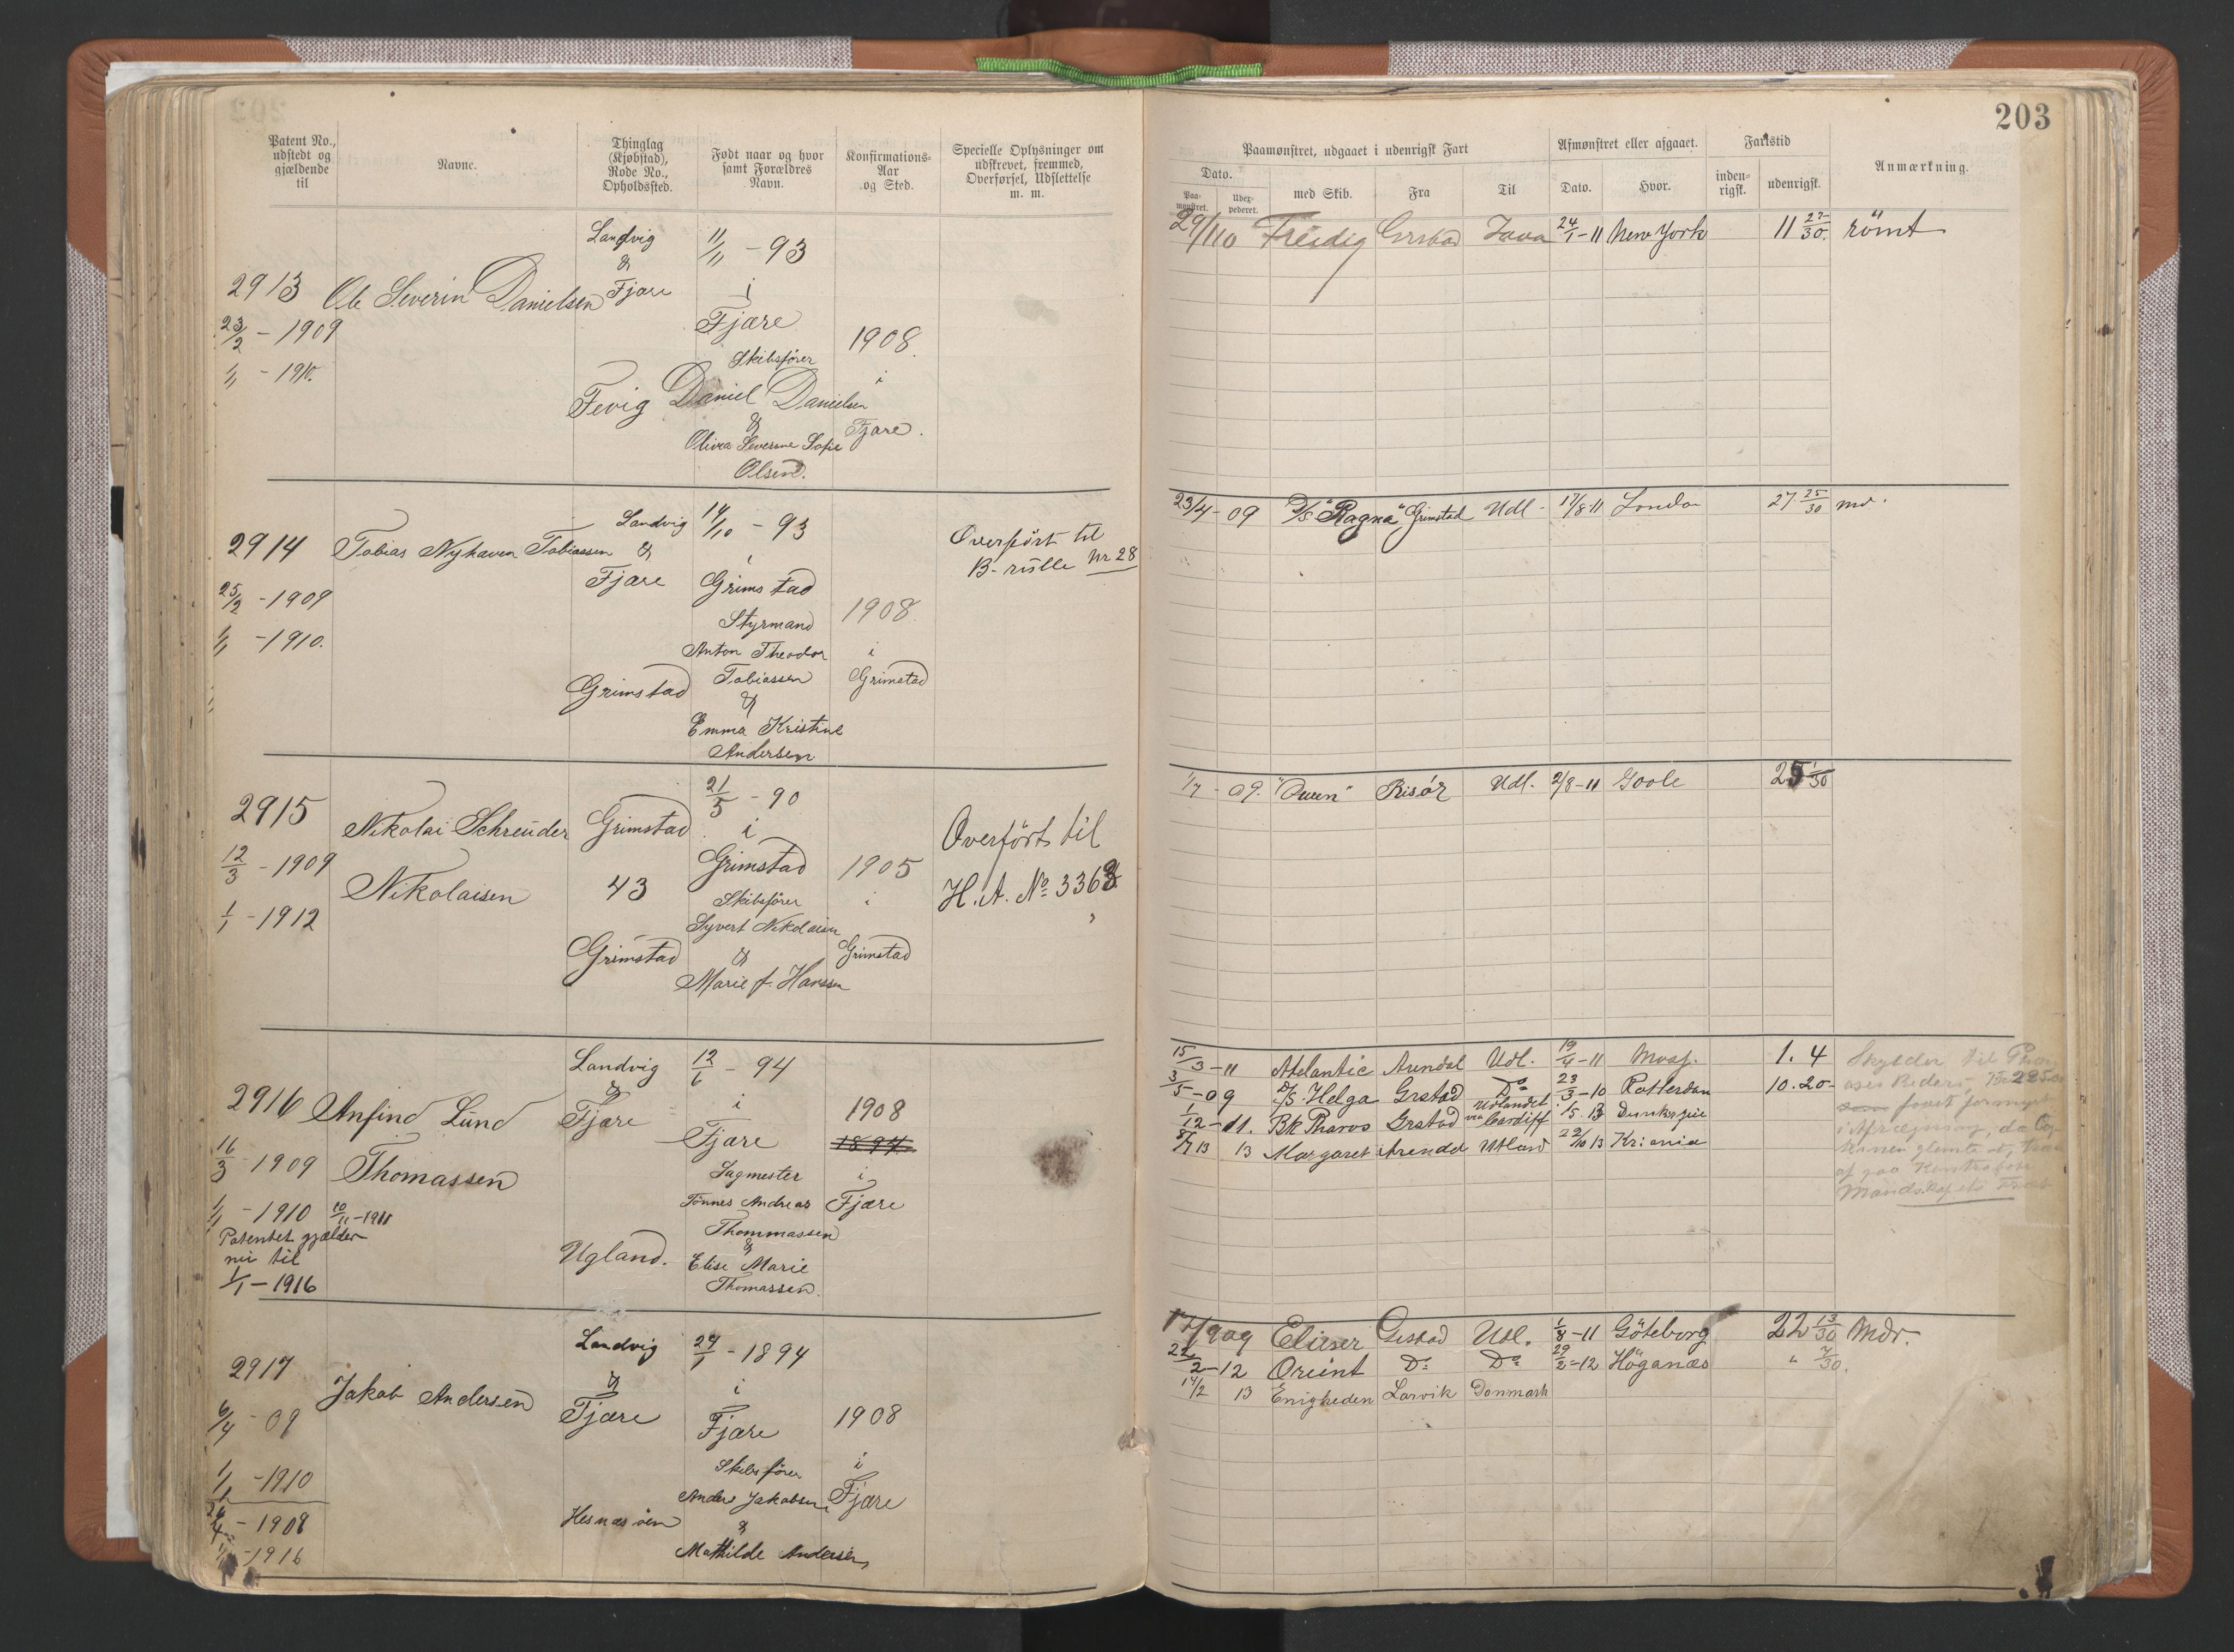 203
Patent No., udstedt og gjældende til
Navne.
Thinglag (Kjøbstad), Rode No., Opholdssted.
Født naar og hvor samt Forældres Navn.
Konfirmations-Aar og Sted.
Specielle Oplysninger om udskrevet, fremmed, Overførsel, Udslettelse m. m.
Paamønstret, udgaaet i udenrigsk Fart
Dato.
Paamønstret.
Udexpederet.
med Skib.
Fra
Til
Afmønstret eller afgaaet.
Dato.
Hvor.
Fartstid
indenrigsk.
udenrigsk.
Anmærkning.
2913
23/2 - 1909
1/1 - 1910.
Ole Severin Danielsen
Landvig
&
Fjære
Fevig
11/11 - 93
i
Fjære
Skibsfører
Daniel Danielsen
&
Olivia Severine Sofie
Olsen.
1908.
i
Fjære.
29/1 10 Freidig Grstad Java 24/1-11 New York 11 27/30. römt
2914
25/2 - 1909
1/1 - 1910.
Tobias Nyhaven Tobiassen
Landvig
&
Fjære
Grimstad
14/10 - 93
i
Grimstad
Styrmand
Anton Theodor
Tobiassen
&
Emma Kristine
Andersen
1908.
i
Grimstad
Overført til
B-rulle Nr 28
23/4 - 09 D/S "Ragna" Grimstad Udl. 17/8 11 London 27. 25/30 md.
2915
12/3 - 1909
1/1 - 1912
Nikolai Schreüder
Nikolaisen
Grimstad
43
Grimstad
21/5 - 90
i
Grimstad
Skibsfører
Syvert Nikolaisen
&
Marie f. Hanssen
1905
i
Grimstad
Overført til
H. A. No 3363
1/7 - 09. "Queen" Risör Udl. 2/8-11 Goole 25 1/30
2916
16/3 1909
1/1 - 1910 10/11-1911
Patentet gjælder
nu til
1/1 - 1916
Anfind Lünd
Thomassen
Landvig
&
Fjære
Ugland.
12/6 - 94
i
Fjære
Sagmester
Tönnes Andreas
Thommassen
&
Elise Marie
Thomassen.
1908
1894
i
Fjære
15/3-11 Atlantic Arendal Udl. 19/4-11 Moss. 1. 4
3/5-09 D/S. Helga Grstad Do 23/3-10 Rotterdam 10. 20-
1/12-11. Bk Pharos Grstad Udlandet via Cardiff 1/5. 13 Dunkerque
8/7 13 13 Margaret Arendal Utland 22/10 13 Kriania
Skylder til
2250
i Afregning, da
glemte at
af gaa
Mandskapets
2917
6/4 - 09
1/1 - 1910
- 1908
1/1 - 1916
Jakob Andersen
Landvig
&
Fjære
Hesnæsöen
27/1 - 1894
i
Fjære
Skibsfører
Anders Jakobsen
&
Mathilde Andersen,
1908
i
Fjære
17/9 09 Elieser Grstad Udl. 1/8-11 Göteborg 22 13/30 Mdr.
22/2-12 Orient Do Do 29/2-12 Höganæs " 7/30.
14/2 13 Enigheden Larvik Danmark